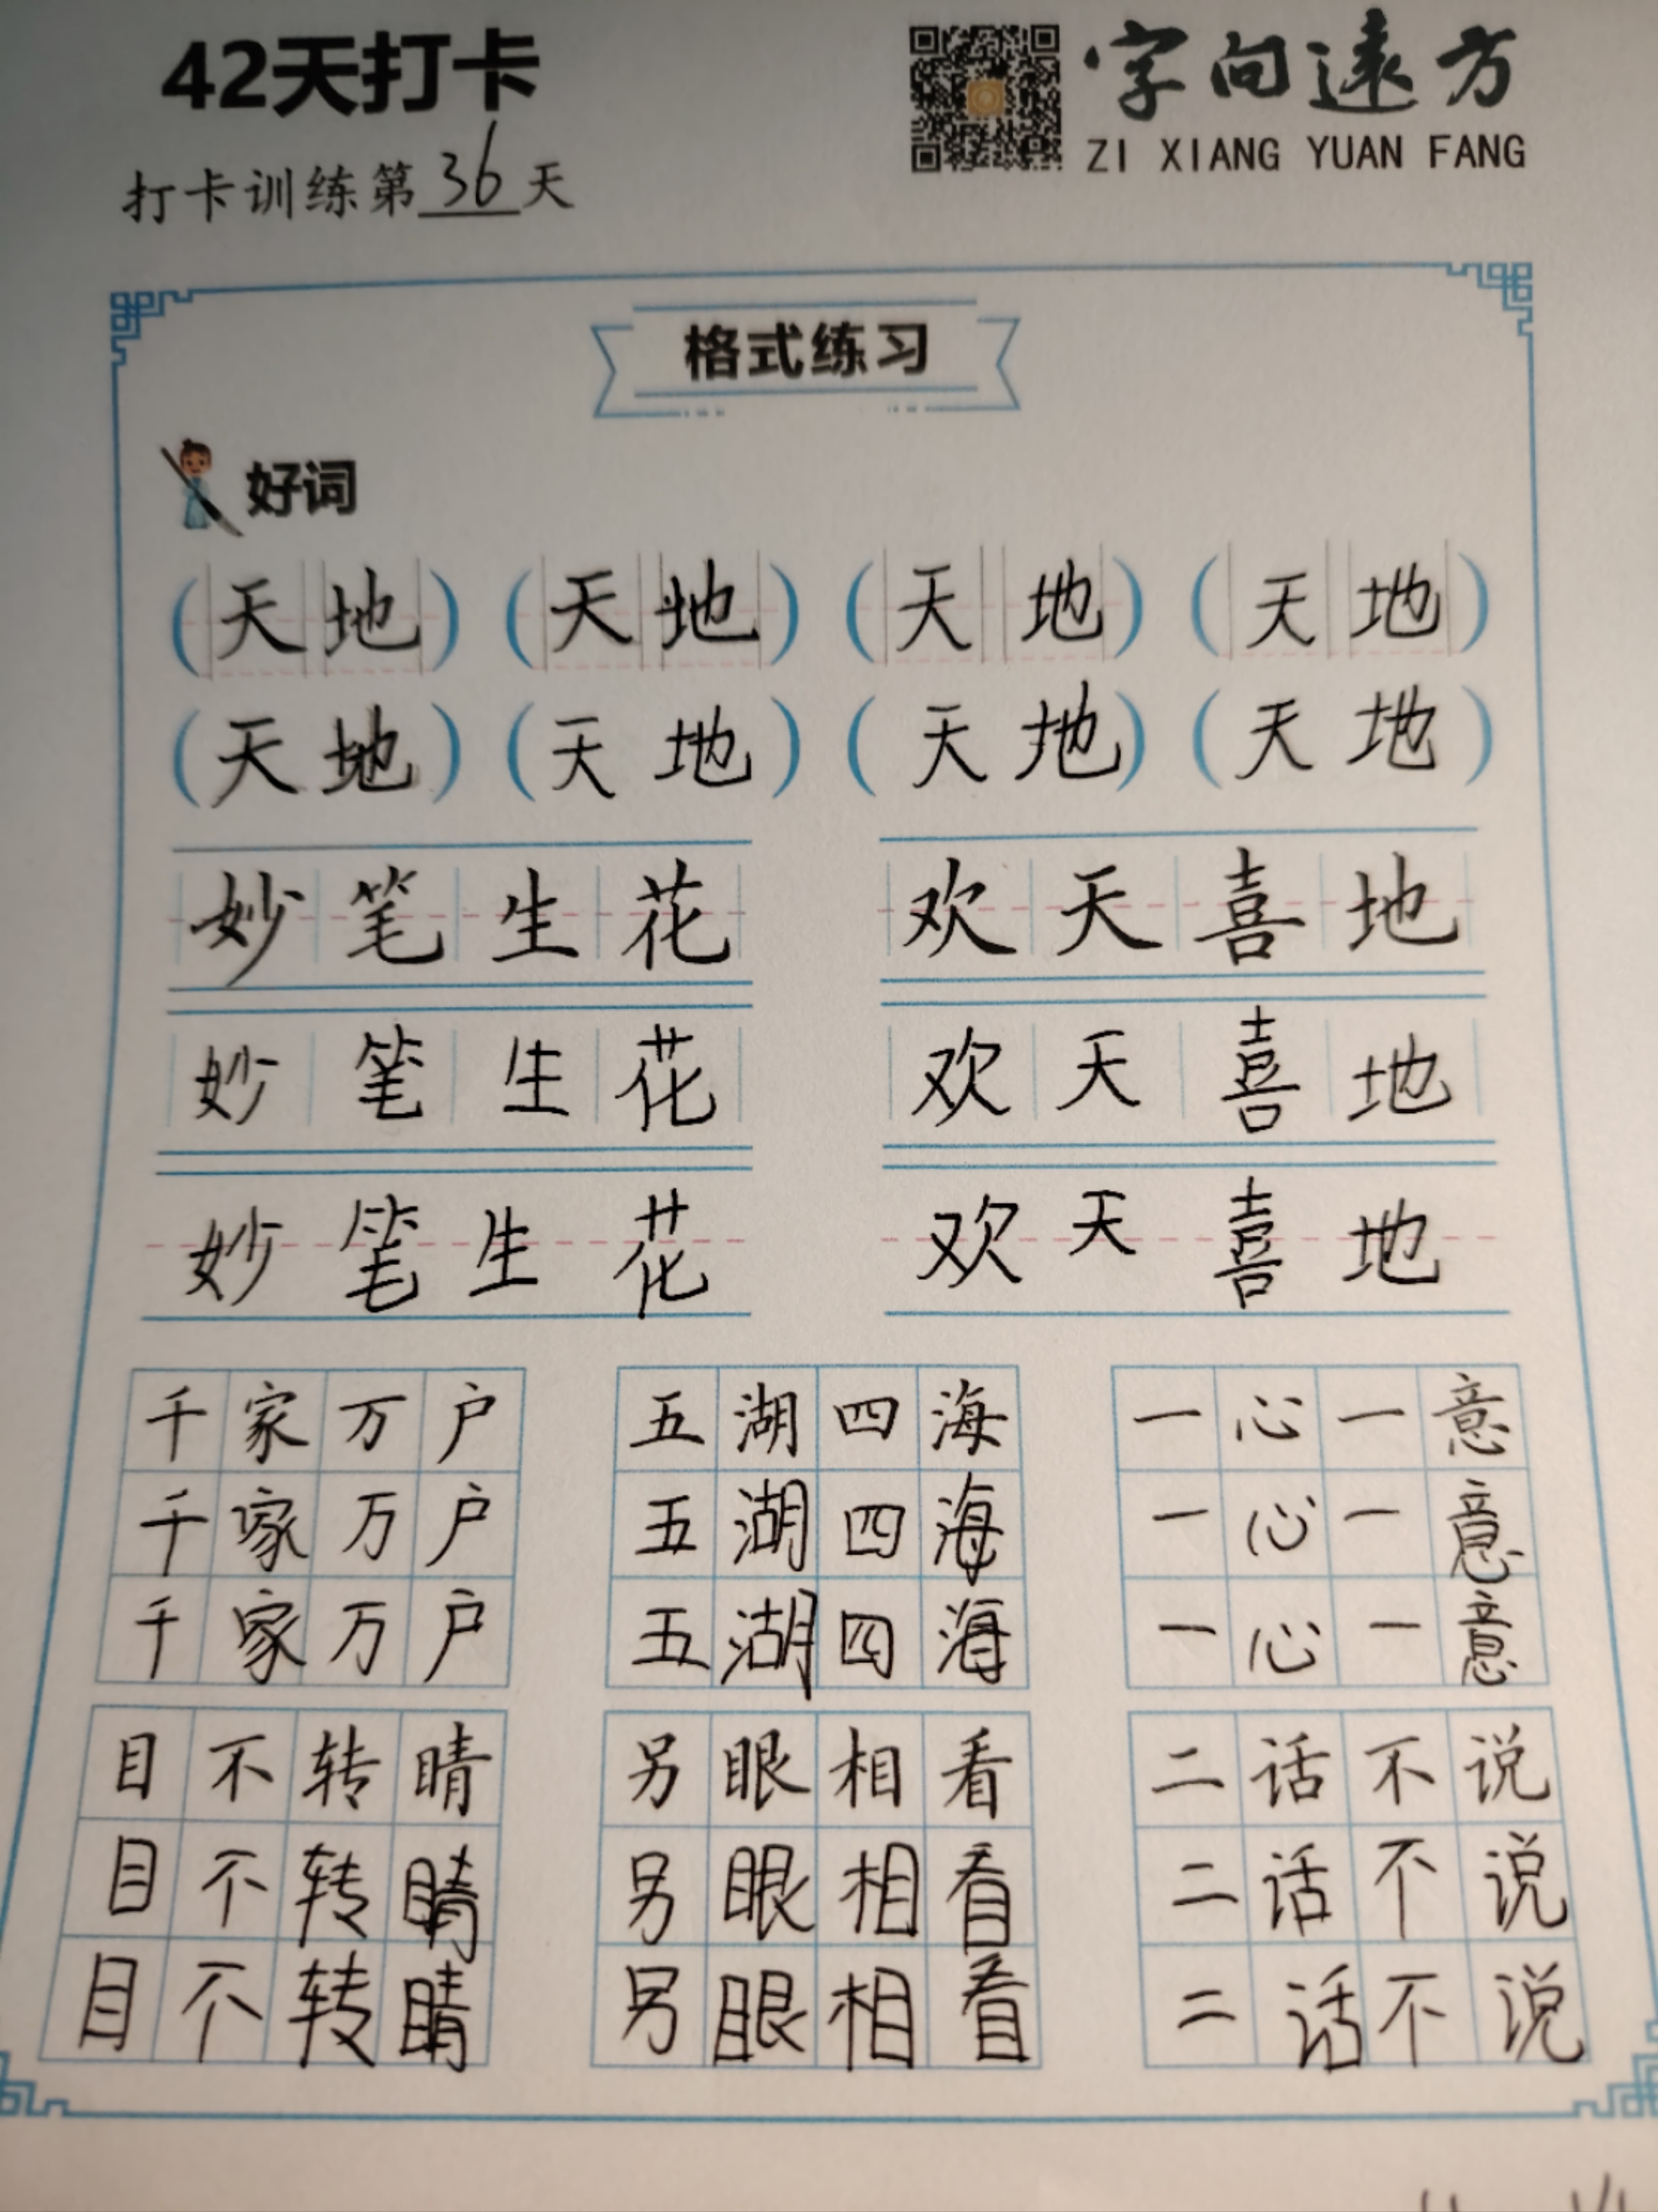 42天打卡 字向遠方
ZI XIANG YUAN FANG
打卡训练第36天
格式练习
好词
(天地) (天地) (天地) (天地)
(天地) (天地) (天地) (天地)
妙笔生花 欢天喜地
妙笔生花 欢天喜地
妙笔生花 欢天喜地
千家万户 五湖四海 一心一意
千家万户 五湖四海 一心一意
千家万户 五湖四海 一心一意
目不转睛 另眼相看 二话不说
目不转睛 另眼相看 二话不说
目不转睛 另眼相看 二话不说